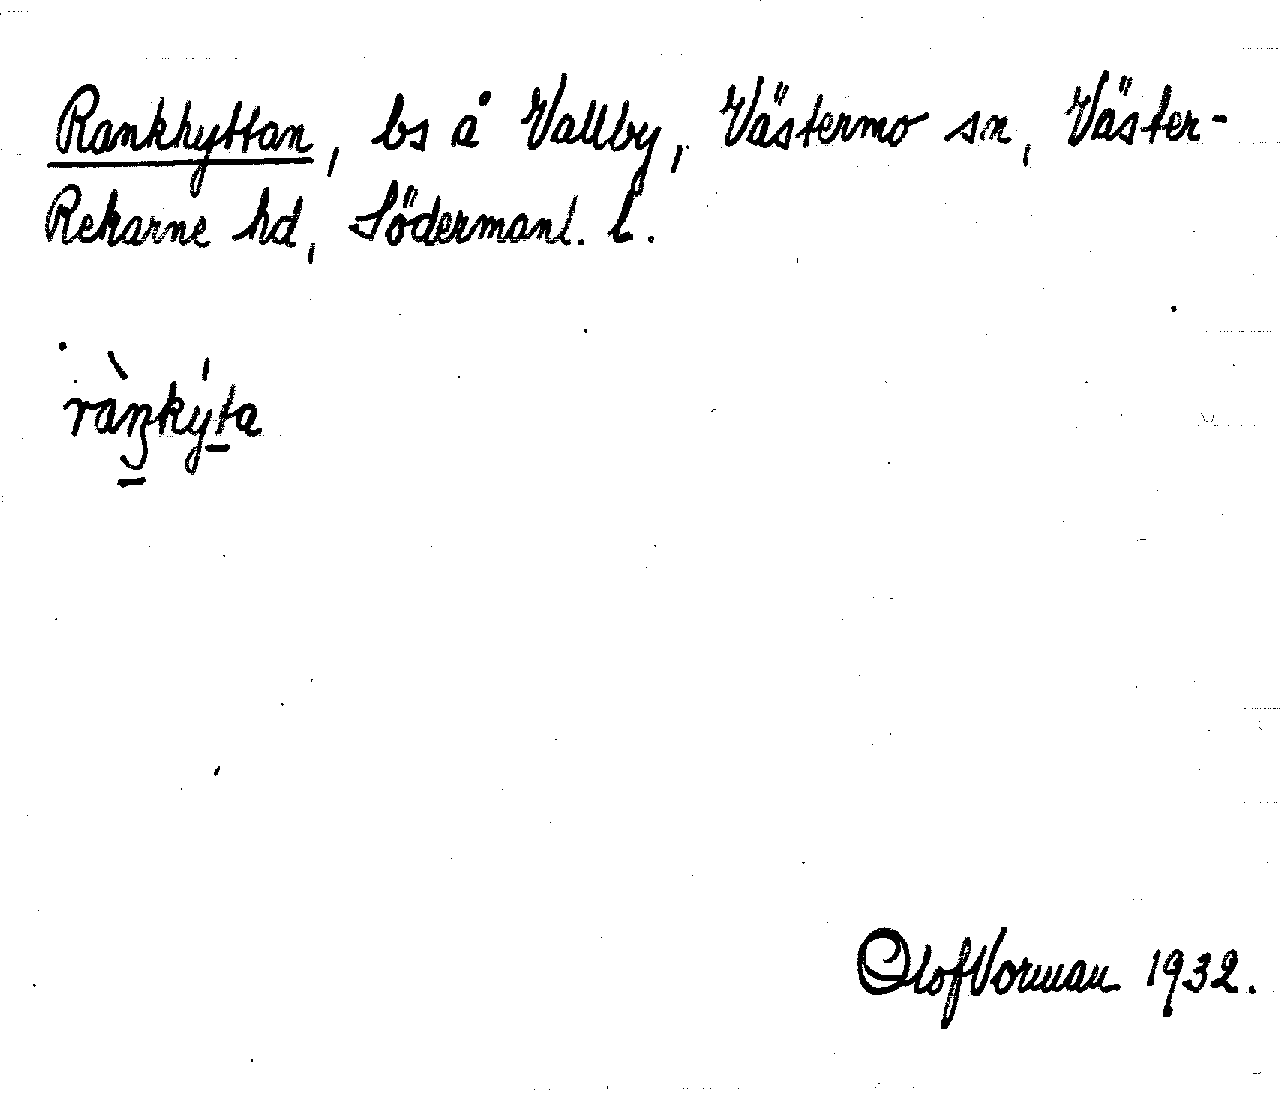 Rankhyttan, bs å Vallby, Västermo sn, Väster-
Rekarne hd, Södermanl. l.
ràŋkýta
Olof Vorman 1932.